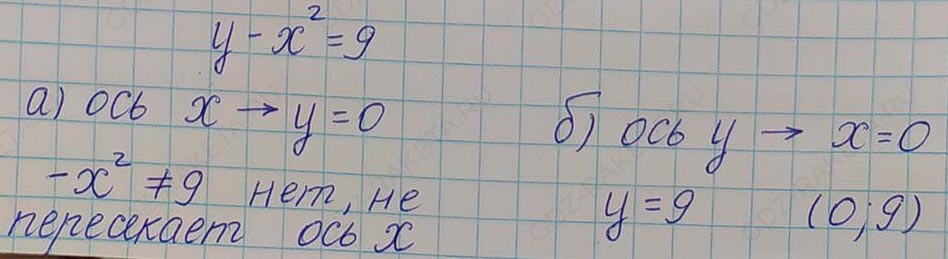 y - x² = 9
а) ось x → y = 0
-x² ≠ 9 нет, не
пересекает ось x
б) ось y → x = 0
y = 9 (0; 9)